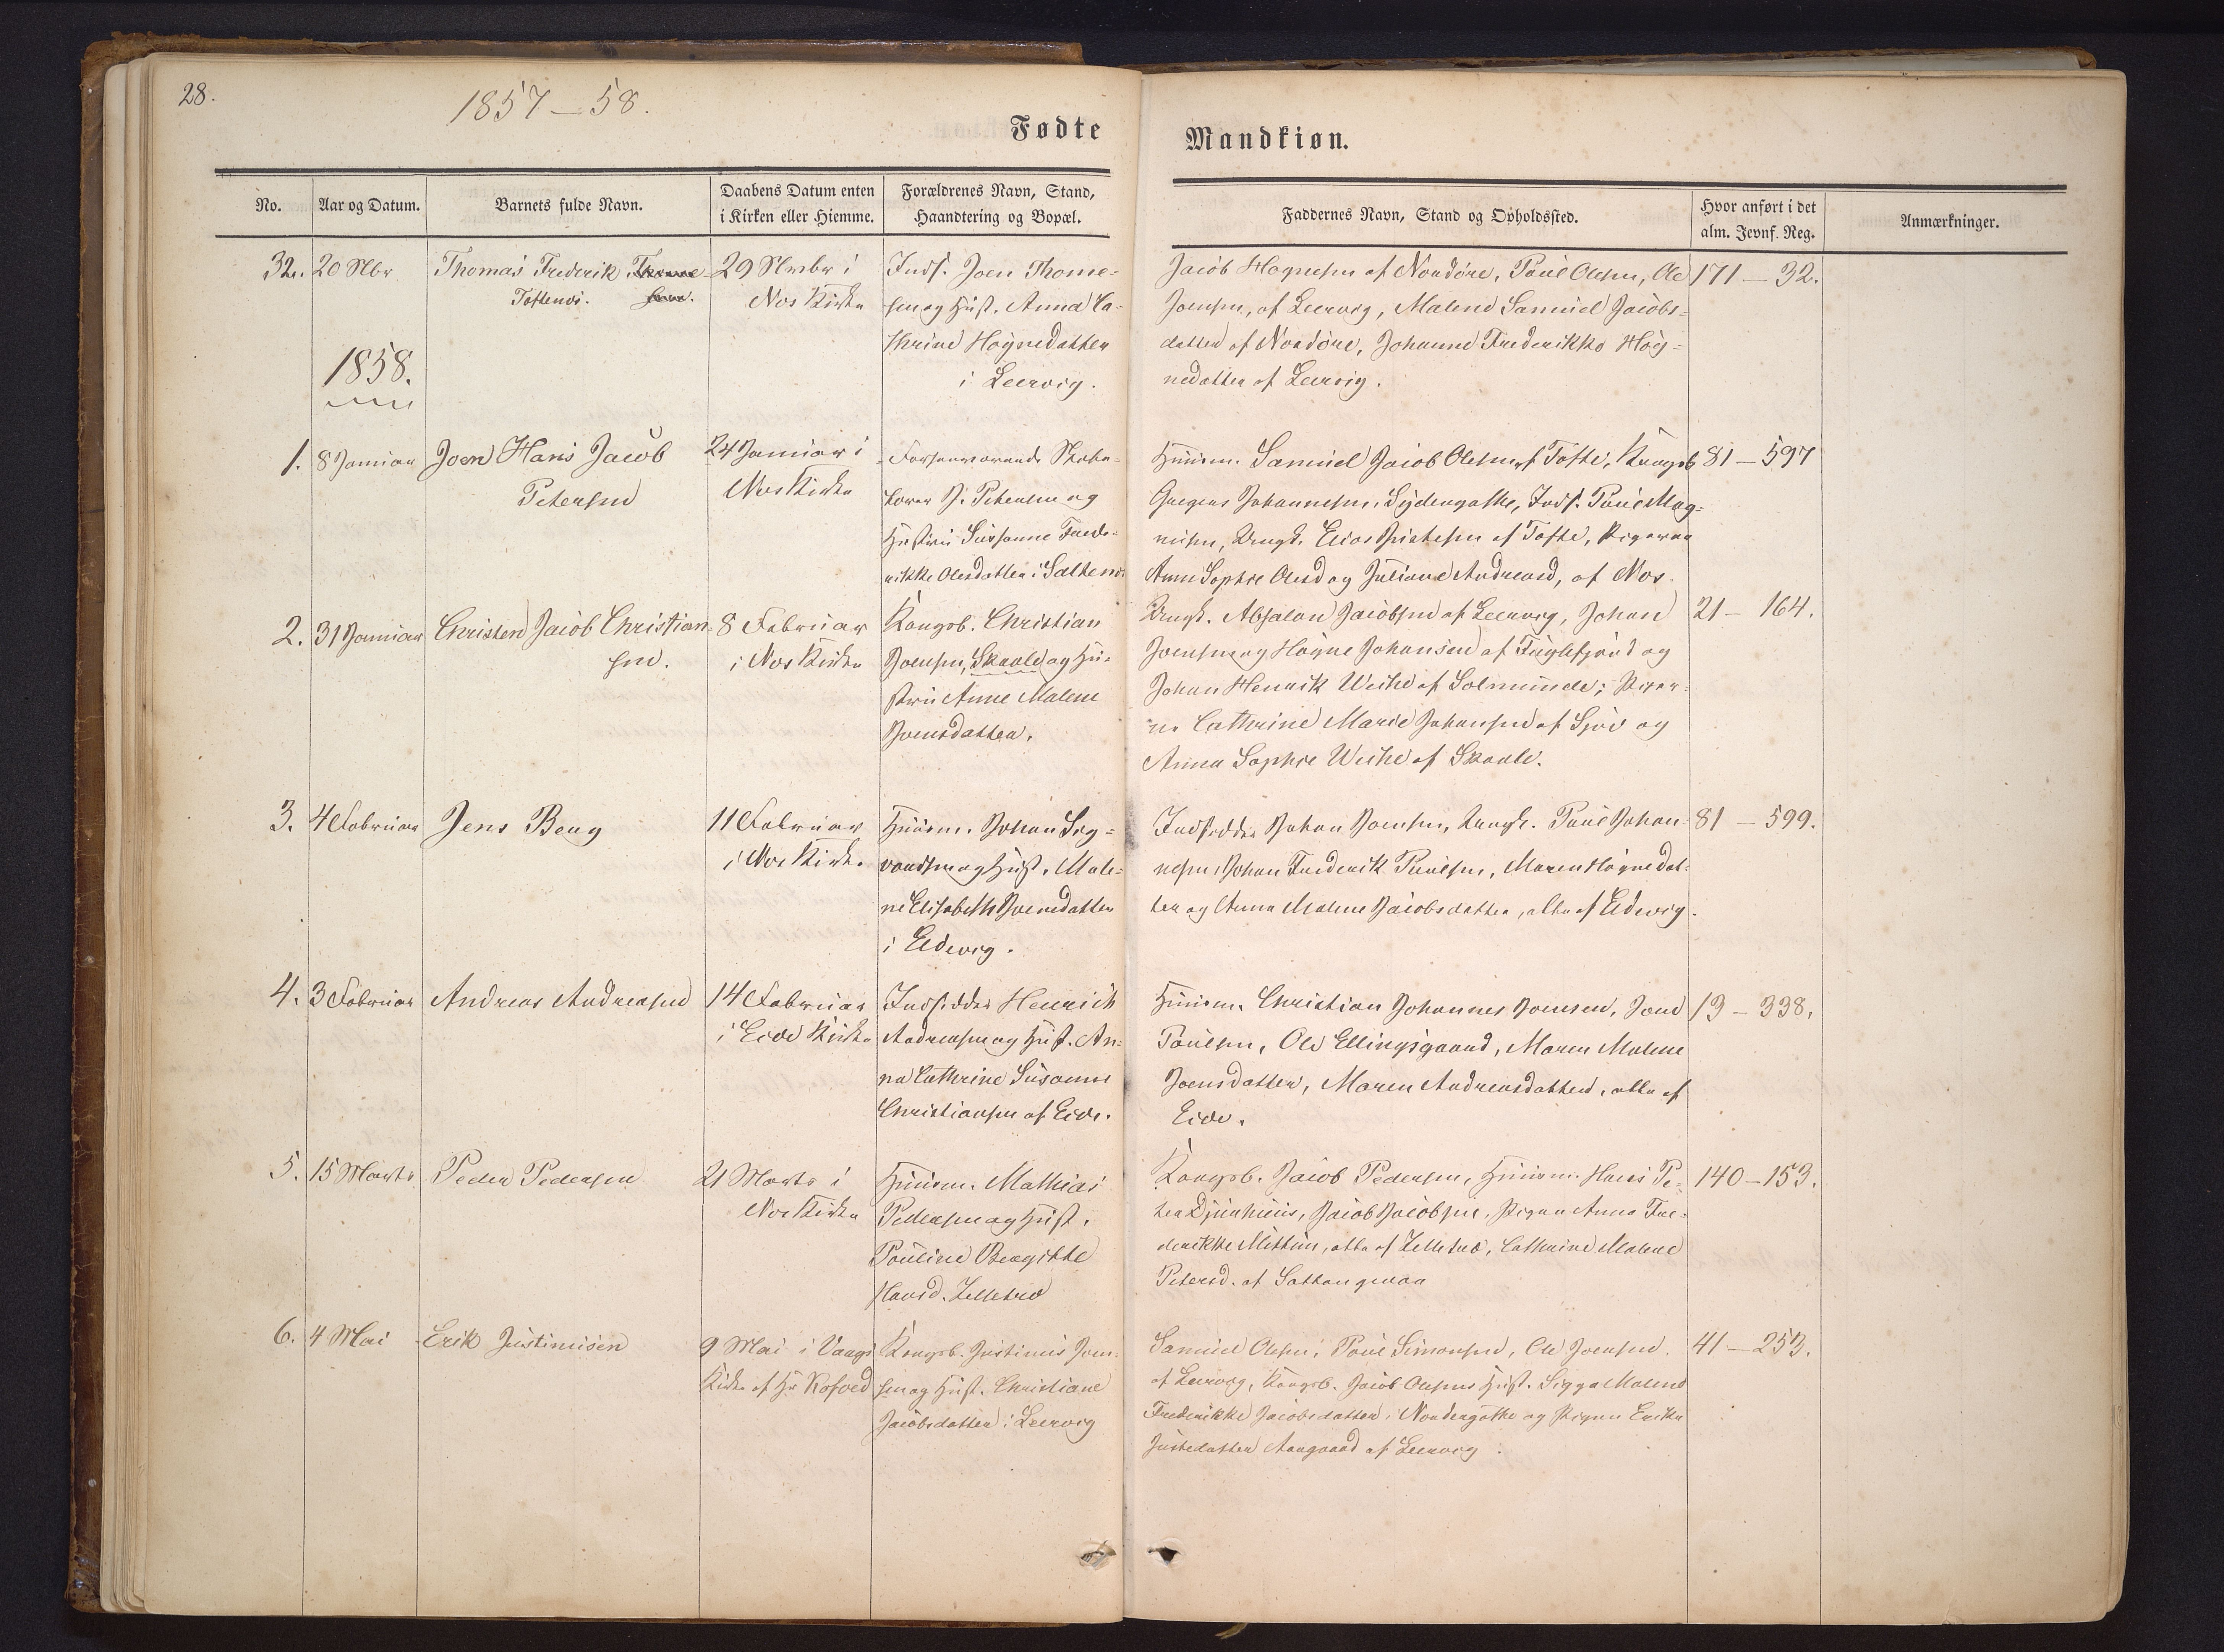 28.
1857–58.
Fødte
Mandkiøn.
No.
Aar og Datum.
Barnets fulde Navn.
Daabens Datum enten
i Kirken eller Hiemme.
Forældrenes Navn, Stand,
Haandtering og Bopæl.
Faddernes Navn, Stand og Opholdssted.
Hvor anført i det
alm. Jevnf. Reg.
Anmærkninger.
32.
20 Nbr
Thomas Frederik Thome-
Toftenæs. sen.
29 Novbr i
Næs Kirke
Inds. Joen Thome-
sen og Hust. Anna Ca-
thrine Høgnedatter
i Leervig.
Jacob Høgnesen af Nordøre, Poul Olesen, Ole
Joensen, af Leervig, Malene Samuel Jacobs-
datter af Nordøre, Johanne Frederikke Høg-
nedatter af Leervig.
171–32.
1858.
1.
8 Januar
Joen Hans Jacob
Petersen
24 Januar i
Næs Kirke
Forhenværende Skole-
lærer J. Petersen og
Hustru Susanne Frede-
rikke Olesdatter i Saltenæs
Huusm. Samuel Jacob Olesen af Tofte, Kongsb
Gregers Johannesen, Sydergøthe, Inds. Poul Mag-
nusen, Ungk. Elias af Tofte, Pigerne
Anne Sophie Olesd og Juliane Andreasd, af Næs.
81–597
2.
31 Januar
Christen Jacob Christian-
sen.
8 Februar
i Næs Kirke
Kongsb. Christian
Joensen, Skaale og Hu-
stru Anne Malene
Joensdatter.
Ungk. Absalon Jacobsen af Leervig, Johan
Joensen og Høgne Johansen af Fuglefjord og
Johan Henrik Weihe af Solmunde; Piger-
ne Cathrine Marie Johansen af Sjov og
Anna Sophie Weihe af Skaale.
21–164.
3.
4 Februar
Jens Berg
11 Februar
i Næs Kirke
Huusm. Johan Sig-
vardsen og Hust. Male-
ne Elisabeth Joensdatter
i Eldevig.
Indsidder Johan Joensen, Ungk. Poul Johan-
nesen, Johan Frederik Poulsen, Maren Høgnedat-
ter og Anna Malene Jacobsdatter, alle af Eldevig.
81–599.
4.
3 Februar
Andreas Andreasen
14 Februar
i Eide Kirke
Indsidder Henrich
Andreasen og Hust. An-
na Cathrine Susanne
Christiansen af Eide.
Huusm. Christian Johannes Joensen, Joen
Poulsen, Ole Ellingsgaard, Maren Malene
Joensdatter, Maren Andreasdatter, alle af
Eide.
13–338.
5.
15 Marts
Peder Pedersen
21 Marts i
Næs Kirke
Huusm. Mathias
Pedersen og Hust.
Pouline Bergithe
Hansd. Zelletræ
Kongsb. Jacob Pedersen, Huusm. Hans Pe-
ter Djurhuus, Jacob Jacobsen, Pigen Anna Fre-
derikke Mittun, alle af Zelletræ, Cathrine Malene
Petersd. af Saltangeraa
140–153.
6.
4 Mai
Erik Justinusen
9 Mai i Vaags
Kirke af Hr Rosoed
Kongsb. Justinus Joen-
sen og Hust. Christiane
Jacobsdatter i Leervig
Samuel Olesen, Poul Simonsen, Ole Joensen,
af Leervig, Kongsb. Jacob Olesens Hust. Sigga Malene
Frederikke Jacobsdatter i Nordergøthe og Pigen Erika
Justedatter Aargaard af Leervig.
41–253.